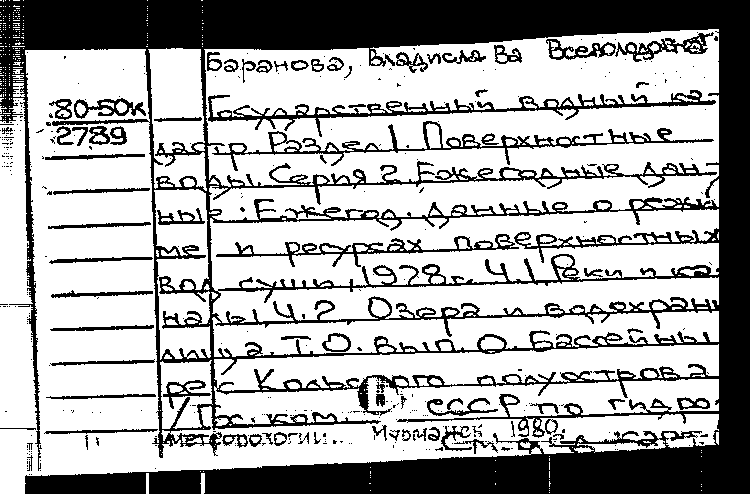 Баранова, Владислава Всеволодовна
80-50к
2789
Государственный водный ка-
дастр. Раздел 1. Поверхностные
воды. Серия 2. Ежегодные дан-
ные: Ежегод. данные о режи
ме и ресурсах поверхностных
вод суши, 1978г. Ч.1. Реки и ка-
налы, Ч.2. Озера и водохрани
лища. Т.О. Вып. О. Бассейны
рек Кольского полуострова
/ Гос. ком. СССР по гидро-
метеорологии.. Мурманск, 1980.
См. след. карт-